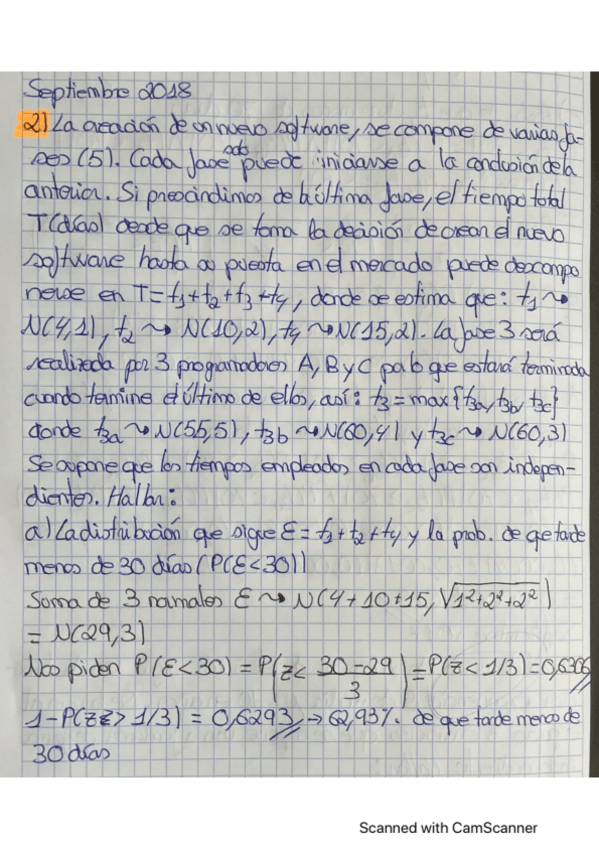 Septiembre 2018
2) La creación de un nuevo software, se compone de varias fa-
ses (5). Cada fase solo puede iniciarse a la conclusión de la
anterior. Si prescindimos de la última fase, el tiempo total
T(días) desde que se toma la decisión de crean el nuevo
software hasta su puesta en el mercado puede descompo
nerse en T = t₁+t₂+t₃+t₄, donde se estima que: t₁ ~
N(4,1), t₂ ~ N(10,2), t₄ ~ N(15,2). La fase 3 será
realizada por 3 programadores A, B y C por lo que estará terminada
cuando termine el último de ellos, así: t₃ = max{t₃a, t₃b, t₃c}
donde t₃a ~ N(55,5), t₃b ~ N(60,4) y t₃c ~ N(60,3)
Se supone que los tiempos empleados en cada fase son indepen-
dientes. Hallar:
a) La distribución que sigue E = t₁+t₂+t₄ y la prob. de que tarde
menos de 30 días (P(E<30))
Suma de 3 normales E ~ N(4+10+15, √1²+2²+2²)
= N(29,3)
Nos piden P(E<30) = P(z< 30-29/3) = P(z < 1/3) = 0,6306
1-P(z > 1/3) = 0,6293 → 62,93%. de que tarde menos de
30 días
Scanned with CamScanner